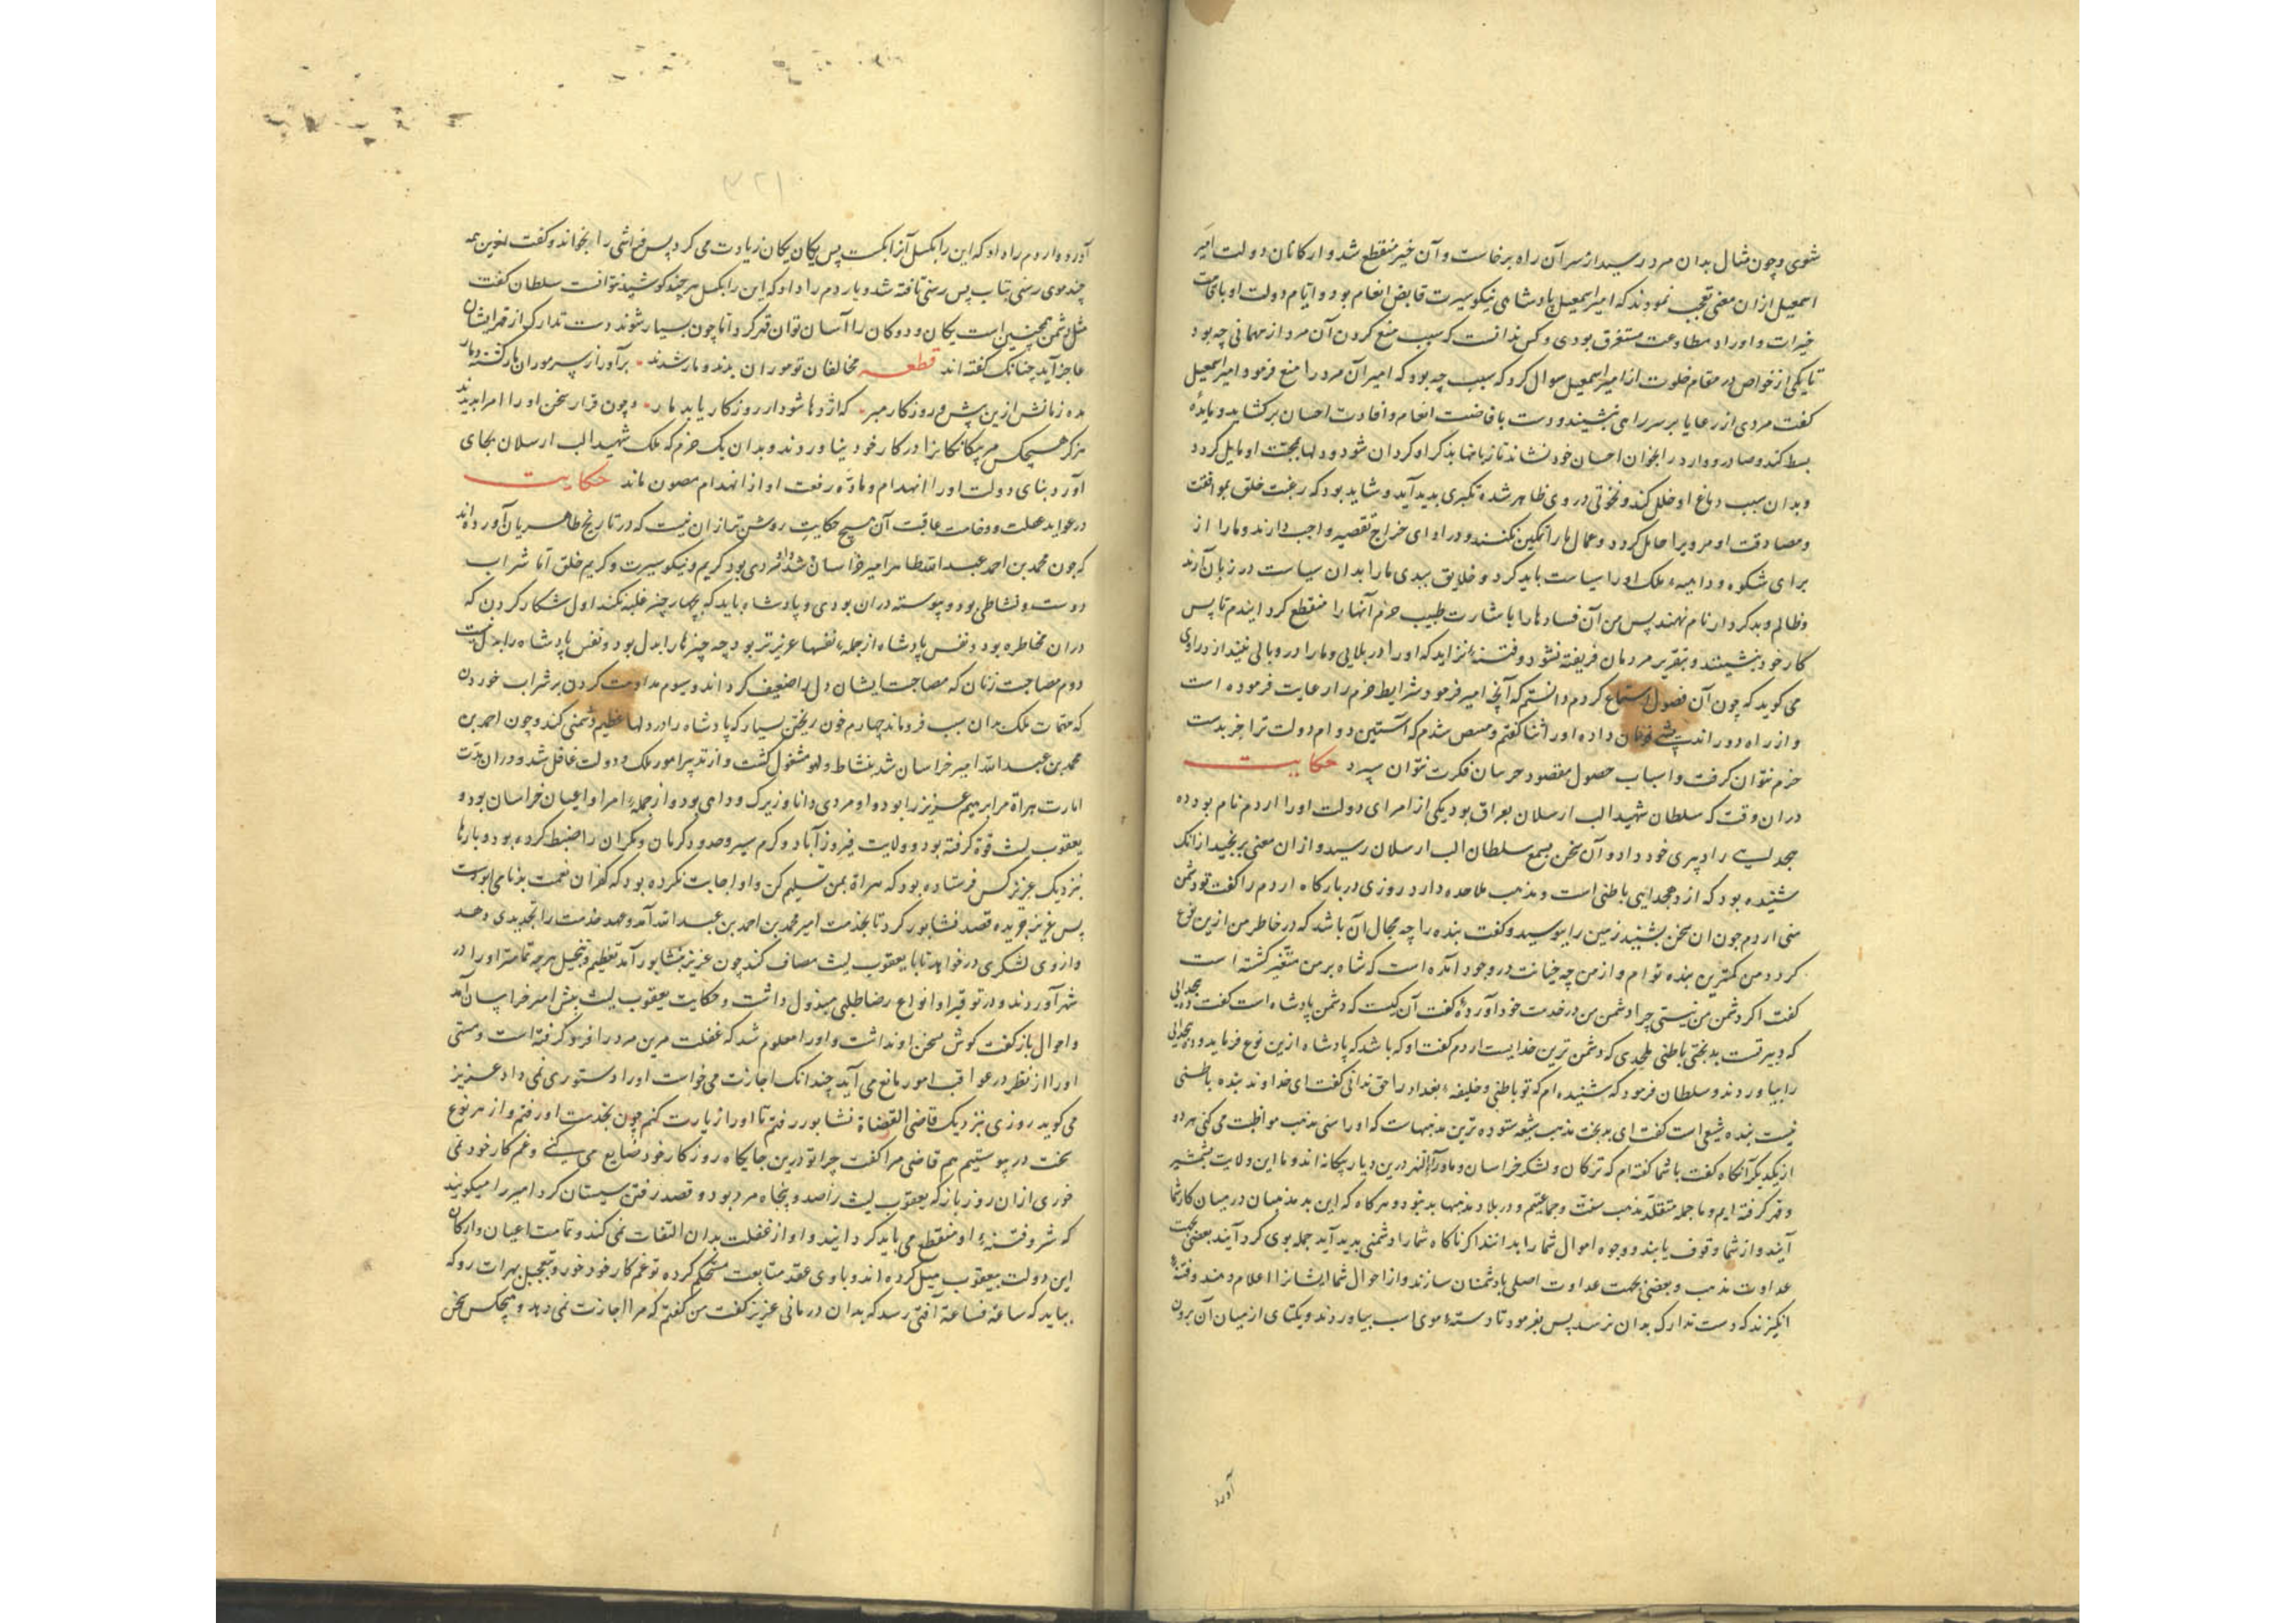 شوی و چون مثال بدان مرد رسید از سر آن راه برخاست و آن خیر منقطع شد و ارکانان دولت امیر
اسمعیل ازان معنی تعجب نمودند که امیر اسمعیل پادشاهی نیکو سیرت قابض انعام بود و ایام دولت او با قامت
خیرات و اوراد مطاوعت مستغرق بودی و کس ندانست که سبب منع کردن آن مرد از مهمانی چه بود
تا یکی از خواص در مقام خلوت از امیر اسمعیل سوال کرد که سبب چه بود که امیر آن مرد را منع فرمود امیر اسمعیل
گفت مردی از رعایا بر سر راهی نشیند و دست با فاضت انعام و افادت احسان برکشاید و مایدهٔ
بسط کند و صادر و وارد را بخوان احسان خود نشاند تا زبانها بذکر او گردان شود و دلها بمحبت او مایل گردد
و بدان سبب دماغ او خلل کند و نخوتی در وی ظاهر شده تکبری بدید آید و شاید بود که رغبت خلق بموافقت
و مصادقت او مرو برا حامل گردد و عمال ما را تمکین نکنند و در ادای خراج تقصیر واجب دارند و ما را از
برای شکوه و داهیهٔ ملک او را سیاست باید کرد و خلایق ببدی ما را بدان سیاست در زبان آرند
و ظالم و بد کردار نام نهند پس من آن فساد ها را باشارت طبیب حزم آنها را منقطع گردانیدم تا پس
کار خود بنشیند و بتقریر مردمان فریفته نشود و فتنه نزاید که او را در بلایی و ما را در وبالی نیندازد راوی
می گوید که چون آن فصول استماع کردم دانستم که آنچه امیر فرمود شرایط حزم را رعایت فرموده است
و از راه دور اندیشی فرمان داده او را ثنا گفتم و مصص شدم که آستین دوام دولت ترا جز بدست
حزم نتوان گرفت و اسباب حصول مقصود جز سان فکرت نتوان سپرد حکایت
دران وقت که سلطان شهید الب ارسلان بعراق بود یکی از امرای دولت او را اردم نام بود ده
بجدایی را دبیری خود داد و آن سخن بسمع سلطان الب ارسلان رسید و ازان معنی برنجید ازانک
شنیده بود که از ده بجدایی باطنی است و مذهب ملاحده دارد روزی در بارگاه اردم را گفت تو دشمن
منی اردم چون ان سخن بشنید زمین را ببوسید و گفت بنده را چه مجال آن باشد که در خاطر من ازین نوع
گردد من کمترین بنده توام و از من چه خیانت در وجود آمده است که شاه بر من متغیر گشته است
گفت اگر دشمن من نیستی چرا دشمن من در خدمت خود آوردهٔ گفت آن کیست که دشمن پادشاه است گفت ده بجدایی
که دبیر تست بدبختی باطنی ملحدی که دشمن ترین خدایست اردم گفت او که باشد که پادشاه ازین نوع فرماید و ده بجدایی
را بیاوردند و سلطان فرمود که شنیده ام که تو باطنی و خلیفهٔ بغداد را حق ندانی گفت ای خداوند بنده باطنی
نیست بنده شیعی است گفت ای بدبخت مذهب شیعه ستوده ترین مذهبهاست که او را سنی مذهب مواظبت می کنی هر دو
از یکدیگر آنگاه گفت با شما گفته ام که ترکان و لشکر خراسان و ماورآء النهر درین دیار بیگانه اند و ما این ولایت بشمشیر
و قهر گرفته ایم و ما جمله متقلّد مذهب سنّت و جماعتیم و در بلاد مذهبها بد نبود و هرگاه که این بد مذهبان در میان کار شما
آیند و از شما وقوف یابند و وجوه اموال شما را بدانند اگر ناگاه شما را دشمنی بدید آید جمله بوی گرد آیند بعضی بجهت
عداوت مذهب و بعضی بجهت عداوت اصلی با دشمنان سازند و از احوال شما ایشانرا اعلام دهند و فتنهٔ
انگیزند که دست تدارک بدان نرسد پس بفرمود تا دستهٔ موی اسب بیاوردند و یکتای از میان آن برون
آورد
آورد و اردم را داد که این را بگسل آنرا بگسست پس یکان یکان زیادت می کرد پس فراشی را بخواند و گفت ازین همه
چند موی رسنی بتاب پس رسنی تافته شد و باردم را داد که این را بگسل هر چند کوشید نتوانست سلطان گفت
مثل دشمن همچنین است یکان و دوکان را آسان توان قهر کرد اما چون بسیار شوند دست تدارک از قهر ایشان
عاجز آید چنانک گفته اند قطعه مخالفان تو موران بدند و مار شدند . برآور از سر موران مار گشته دمار
مده زمانشان ازین بیش و روزگار مبر . که اژدها شود ار روزگار یابد مار . و چون قرار سخن او را امرا بدیدند
هرگز هیچکس مر بیگانگانرا در کار خود نیاوردند و بدان یک حزم که ملک شهید الب ارسلان بجای
آورد بنای دولت او را انهدام و مادّه رفعت او از انهدام مصون ماند حکایت
در عواید غفلت و وخامت عاقبت آن هیچ حکایت روشن تر ازان نیست که در تاریخ طاهریان آورده اند
که چون محمد بن احمد عبد الله طاهر امیر خراسان شد او مردی بود کریم و نیکو سیرت و کریم خلق اما شراب
دوست و نشاطی بود و پیوسته دران بودی و پادشاه باید که بچهار چیز غلبه نکند اول شکار کردن که
دران مخاطره بود و نفس پادشاه از جملهٔ نفسها عزیزتر بود چه چیزها را بدل بود و نفس پادشاه را بدل نیست
دوم مصاحبت زنان که مصاحبت ایشان دل را ضعیف گرداند و سیوم مداومت کردن بر شراب خوردن
که مهمات ملک بدان سبب فروماند چهارم خون ریختن بسیار که پادشاه را در دلها عظیم دشمنی کند و چون احمد بن
محمد بن عبد الله امیر خراسان شد بنشاط و لهو مشغول گشت و از تدبیر امور ملک و دولت غافل شد و دران مدّت
امارت هراة مر ابرهیم عزیز را بود و او مردی دانا و زیرک و داهی بود و از جملهٔ امرا و اعیان خراسان بود و
یعقوب لیث قوّة گرفته بود و ولایت فیروزآباد و گرم سیر و حدود کرمان و مکران را ضبط کرده بود و بارها
نزدیک عزیز کس فرستاده بود که هراة بمن تسلیم کن و او اجابت نکرده بود که کفران نعمت بدنامی آوردست
پس عزیز جریده قصد نشابور کرد تا بخدمت امیر محمد بن احمد بن عبد الله آمد و عهد خدمت را تجدیدی دهد
و از وی لشکری درخواهد تا با یعقوب لیث مصاف کند چون عزیز بنشابور آمد بتعظیم و تبجیل هر چه تمامتر او را در
شهر آوردند و در توقیر او انواع رضا طلبی مبذول داشت و حکایت یعقوب لیث پیش امیر خراسان آمد
و احوال باز گفت گوش سخن او نداشت و او را معلوم شد که غفلت مر این مرد را فرو گرفته است و مستی
او را از نظر در عواقب امور مانع می آید چندانک اجازت می خواست او را دستوری نمی داد عزیز
می گوید روزی نزدیک قاضی القضاة نشابور رفتم تا او را زیارت کنم چون بخدمت او رفتم و از هر نوع
سخت در پیوستیم هم قاضی مرا گفت چرا تو درین جایگاه روزگار خود ضایع می کنی و غم کار خود نمی
خوری ازان روز باز که یعقوب لیث را صد و پنجاه مرد بود و قصد رفتن سیستان کرد امیر را میگویند
که شر و فتنهٔ او منقطع می باید گردانید و او از غفلت بدان التفات نمی کند و تمامت اعیان و ارکان
این دولت بیعقوب میل کرده اند و با وی عقد متابعت مستحکم کرده تو غم کار خود خور و بتعجیل بهرات رو که
بباید که ساعة فساعة آفتی رسد که بدان درمانی عزیز گفت من گفتم که مرا اجازت نمی دهد و هیچکس سخن